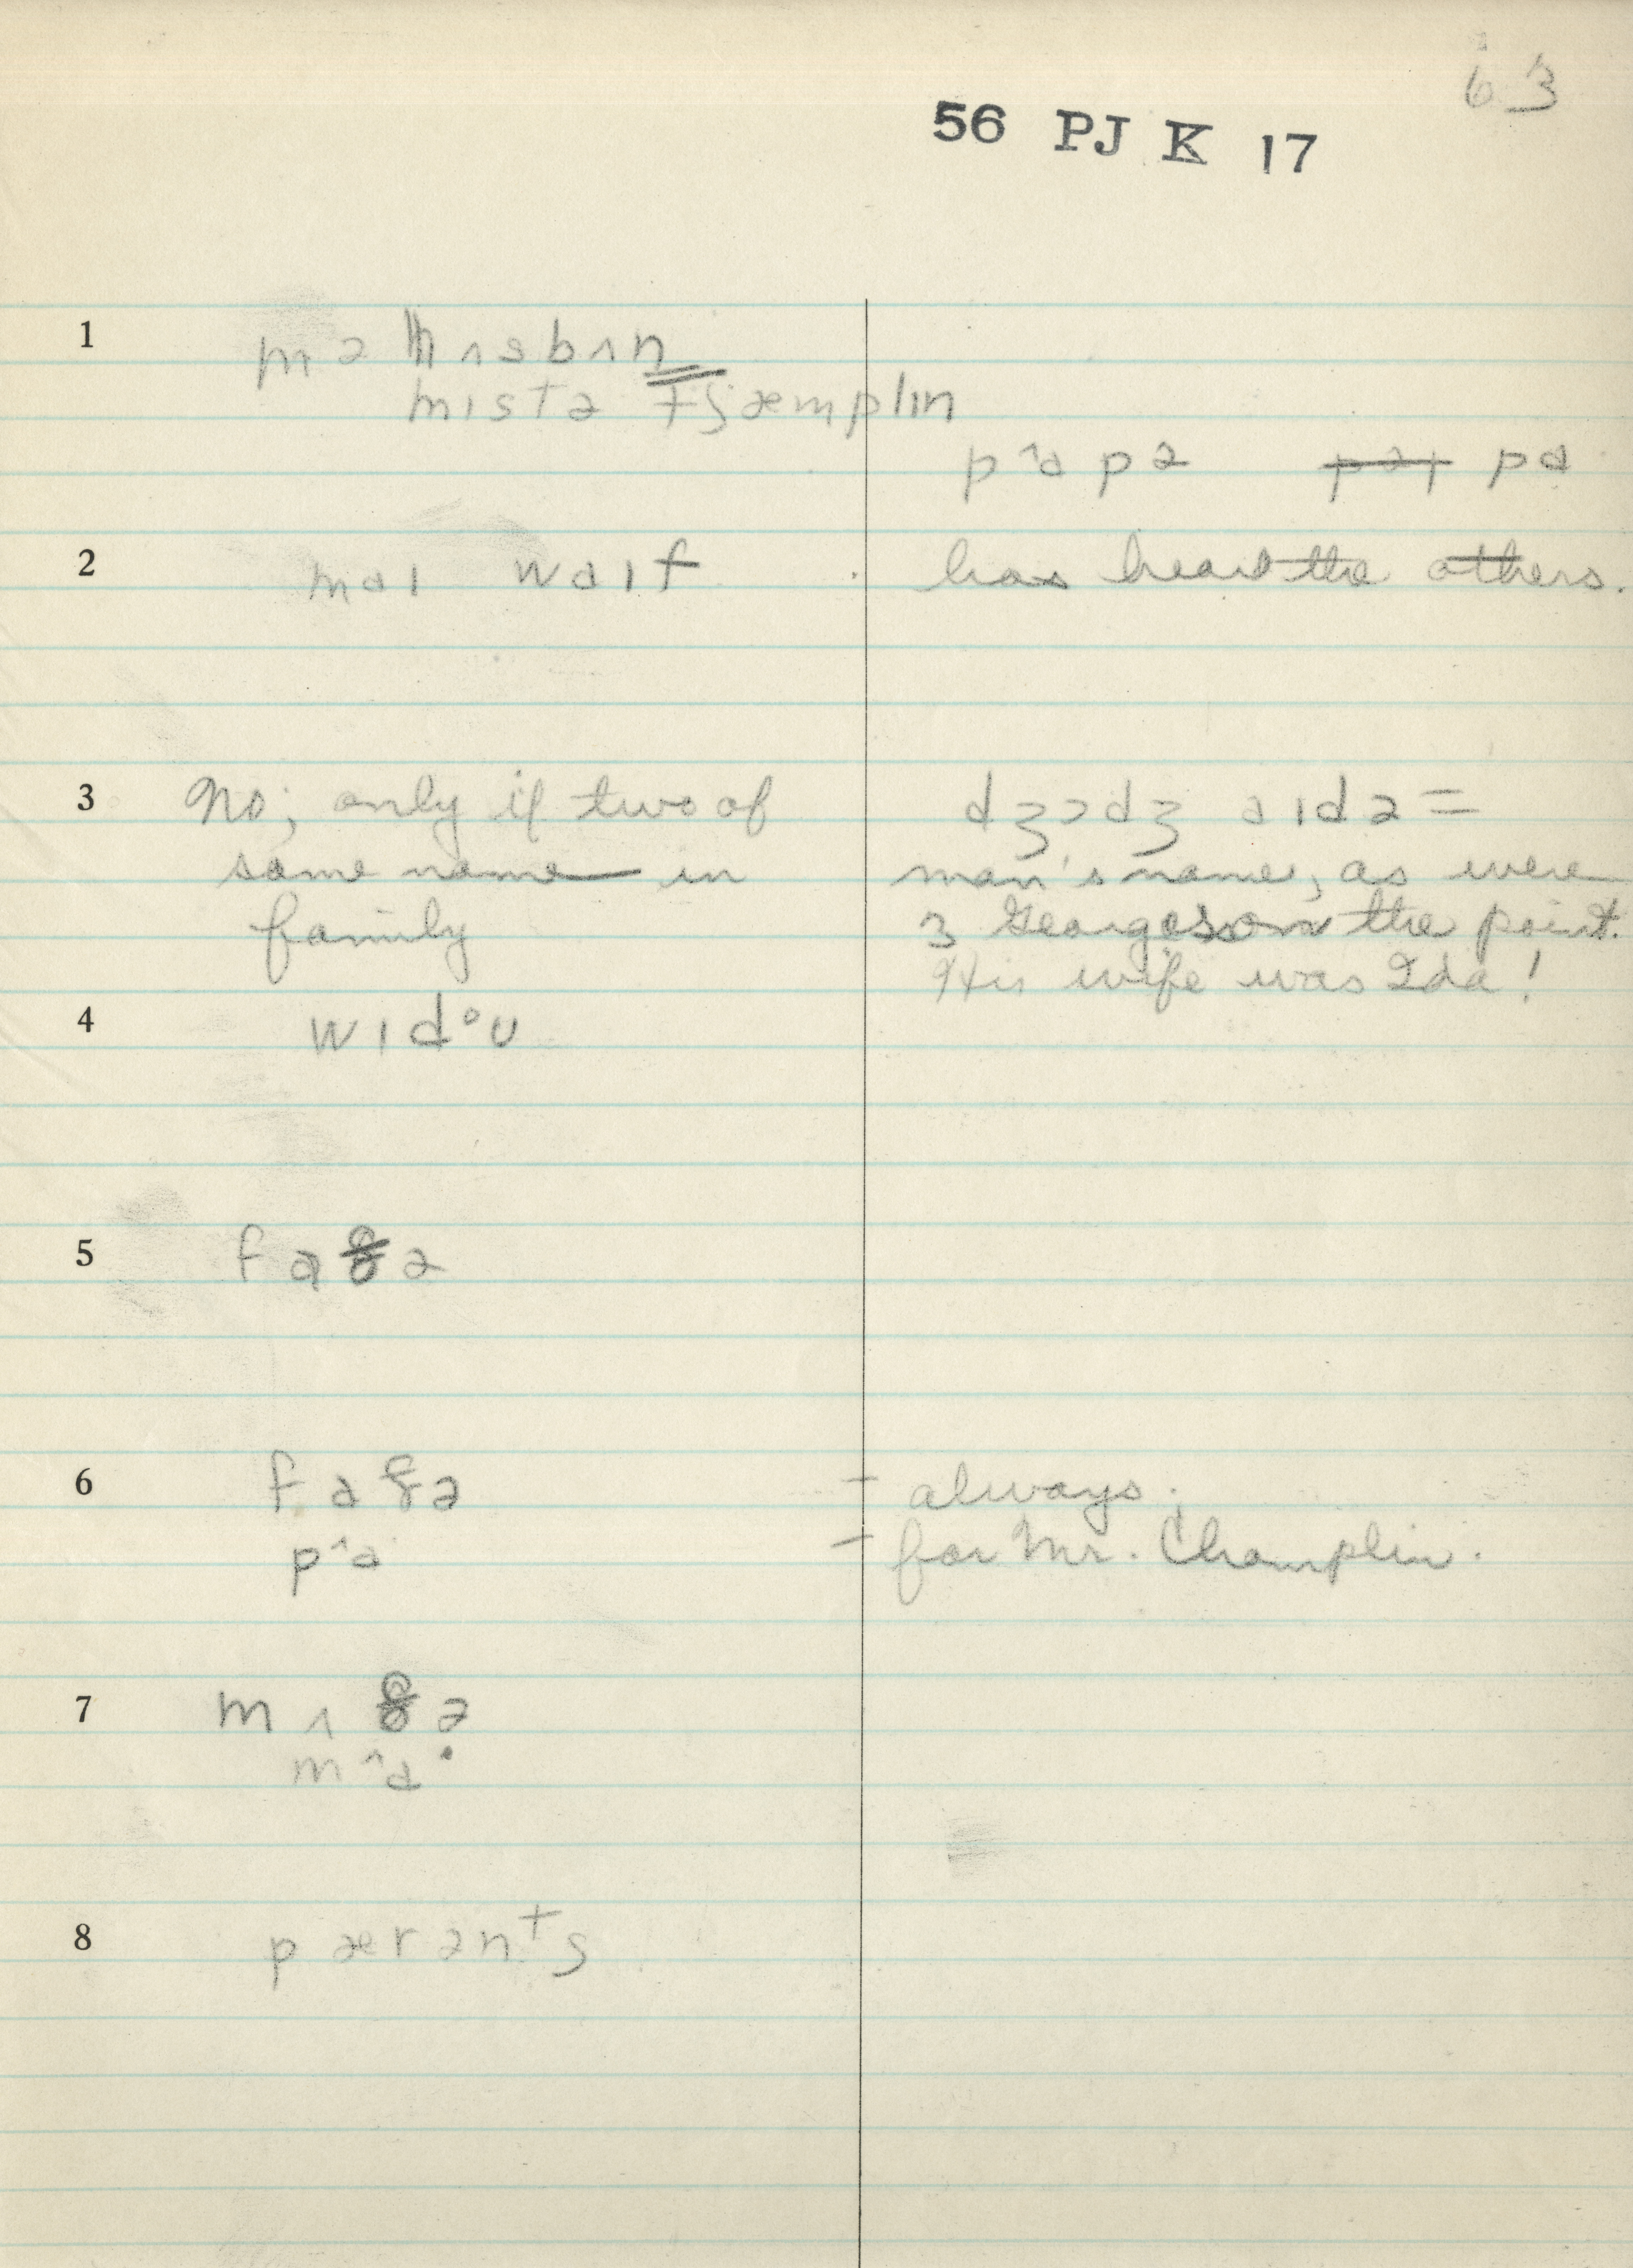 63
56 PJ K 17
1 mə hʌsbʌn
mɪstə tʃæmplɪn
pˆɑpə pɑ
2 maɪ waɪf has heard the others.
3 No; only if two of dʒɔdʒ aɪdə =
same name in man's name, as were
family 3 Georges on the point.
His wife was Ida!
4 wɪdᵒʊ
5 faðə
6 faðə - always.
pˆa - for Mr. Champlin.
7 mʌðə
mˆa·
8 pærənᵗs